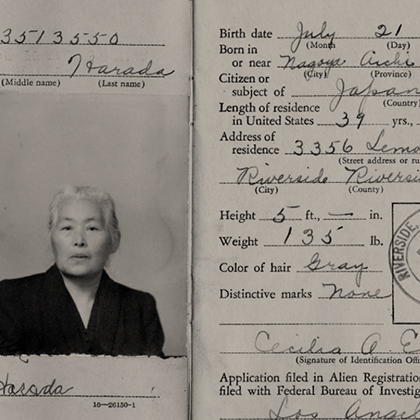 3513550
Harada
(Middle name) (Last name)
Harada
16—26150-1
Birth date July 21
(Month (Day)
Born in
or near Nagoya Aichi
(City) (Province)
Citizen or
subject of Japan
(Country)
Length of residence
in United States 39 yrs.,
Address of
residence 3356 Lemo
(Street address or ru
Riverside Riversi
(City) (County)
Height 5 ft., — in.
Weight 135 lb.
Color of hair Gray
Distinctive marks None
RIVERSIDE,
Cecilia A. E
(Signature of Identification Offi
Application filed in Alien Registratio
filed with Federal Bureau of Investiga
Los Angel